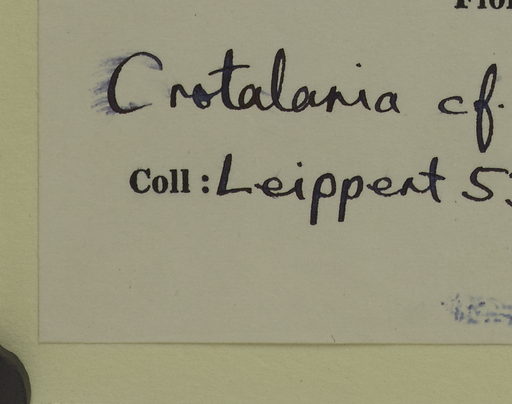 Crotalaria cf.
Coll: Leippert 5